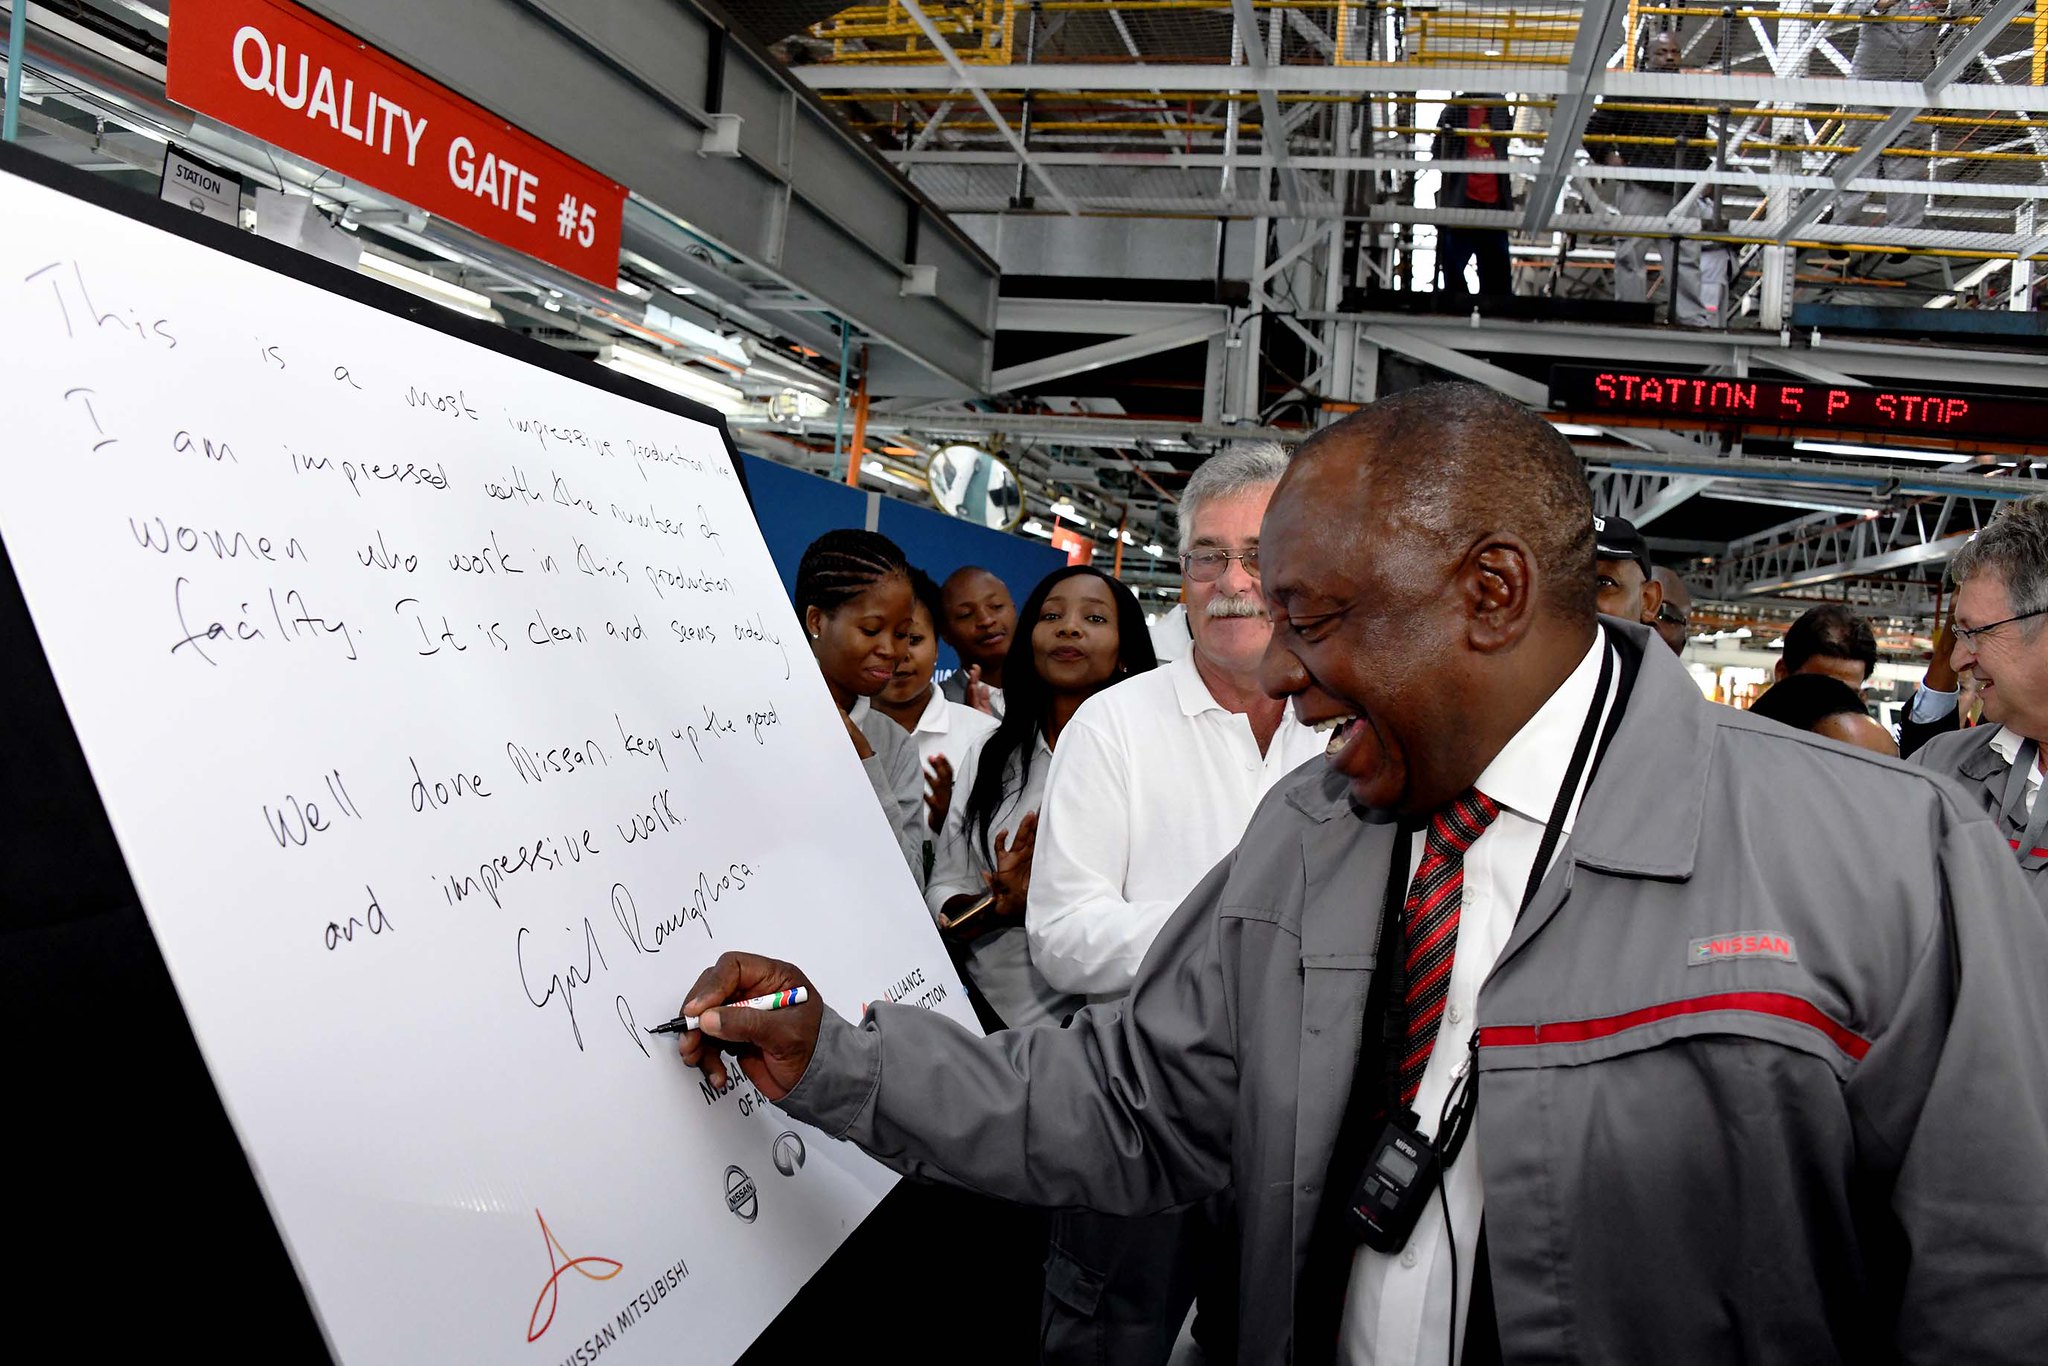 QUALITY GATE #5
STATION
STATION 5 P STOP
This is a most impressive production line
I am impressed with the number of
women who work in this production
facility. It is clean and seems orderly.
Well done Nissan. Keep up the good
and impressive work.
Cyril Ramaphosa.
P
ALLIANCE
NISSAN
OF A
NISSAN
NISSAN MITSUBISHI
NISSAN
MIPRO